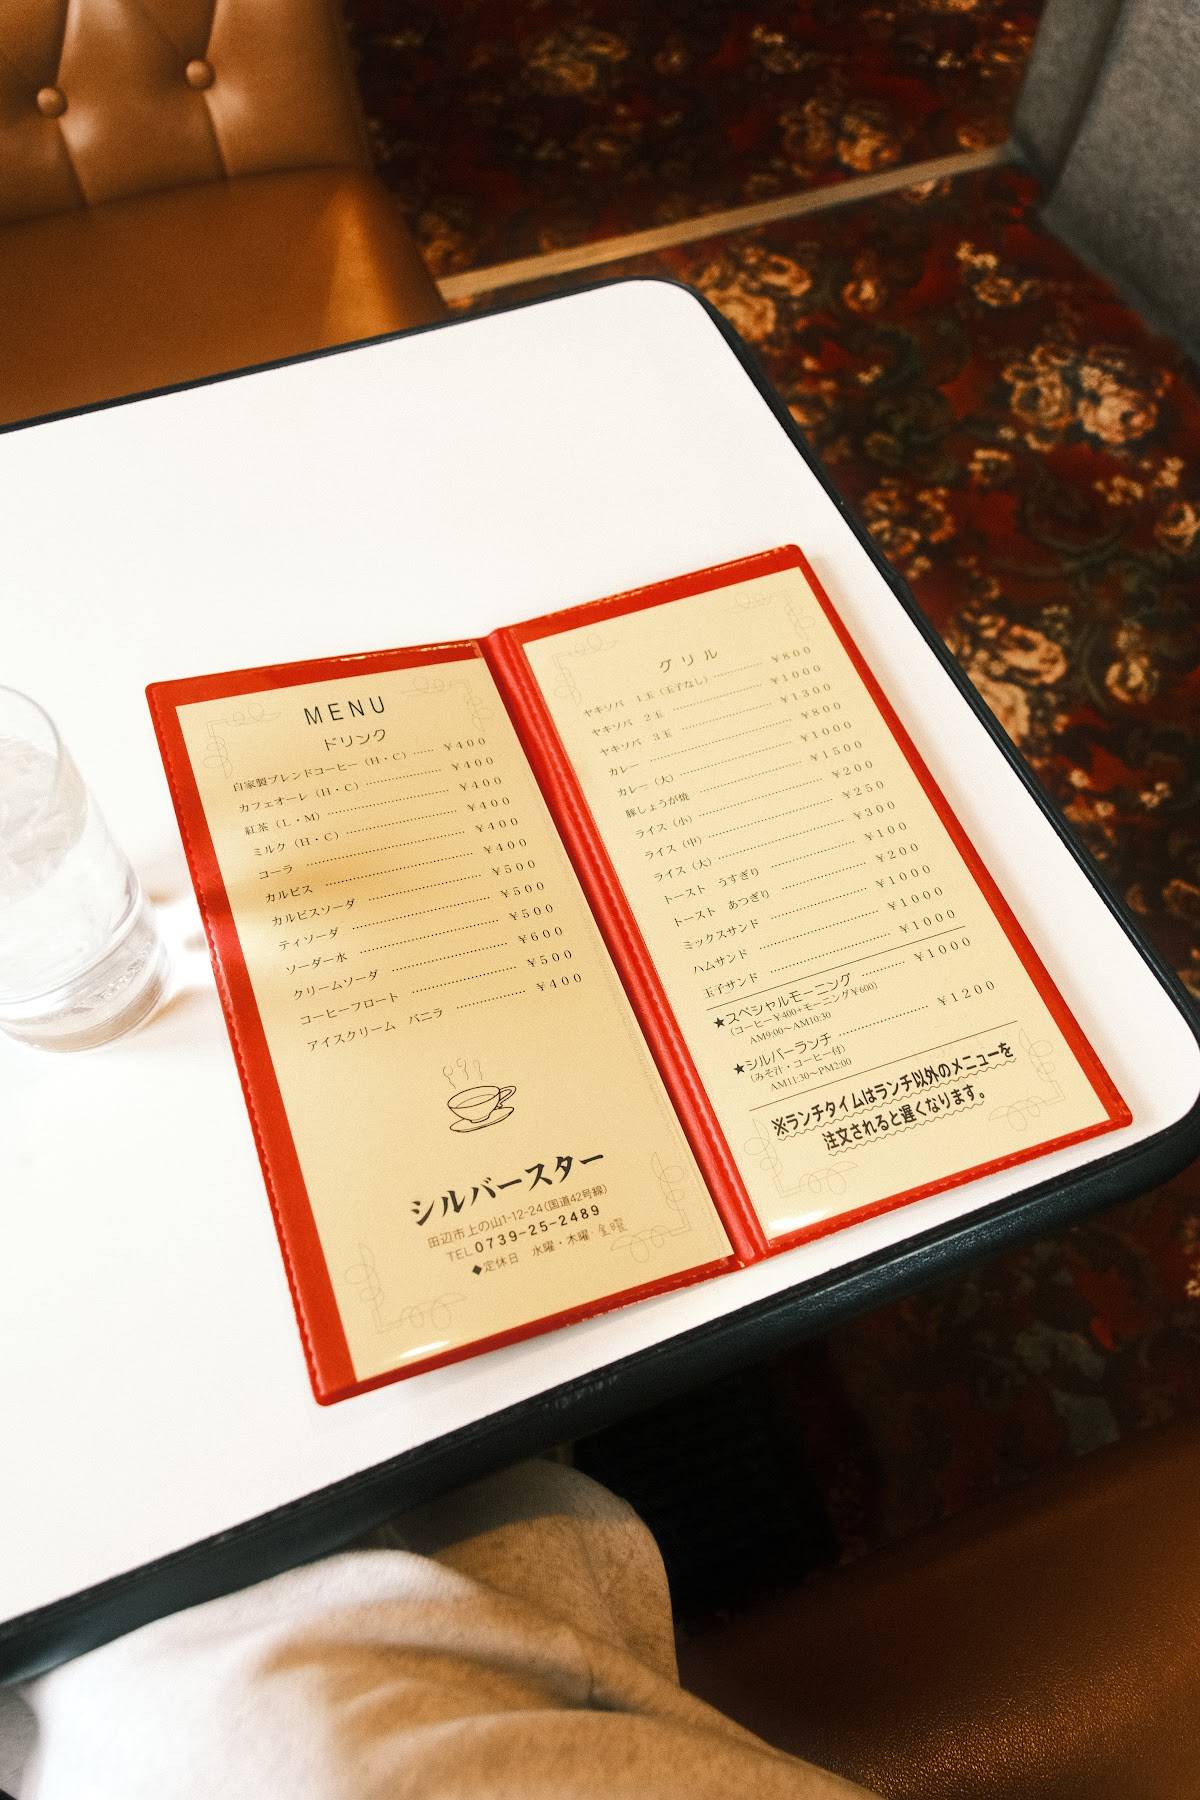 MENU
ドリンク
自家製ブレンドコーヒー（H・C）…… ￥400
カフェオーレ（H・C）……………… ￥400
紅茶（L・M）……………… ￥400
ミルク（H・C）……………… ￥400
コーラ ……………… ￥400
カルピス ……………… ￥400
カルピスソーダ ……………… ￥500
ティソーダ ……………… ￥500
ソーダー水 ……………… ￥500
クリームソーダ ……………… ￥600
コーヒーフロート ……………… ￥500
アイスクリーム　バニラ ………… ￥400
シルバースター
田辺市上の山1-12-24(国道42号線)
TEL 0739-25-2489
◆定休日　水曜・木曜・金曜
グリル
ヤキソバ　1玉（玉子なし）………… ￥800
ヤキソバ　2玉 ……………… ￥1000
ヤキソバ　3玉 ……………… ￥1300
カレー ……………… ￥800
カレー（大）……………… ￥1000
豚しょうが焼 ……………… ￥1500
ライス（小）……………… ￥200
ライス（中）……………… ￥250
ライス（大）……………… ￥300
トースト　うすぎり ……………… ￥100
トースト　あつぎり ……………… ￥200
ミックスサンド ……………… ￥1000
ハムサンド ……………… ￥1000
玉子サンド ……………… ￥1000
★スペシャルモーニング ………… ￥1000
（コーヒー￥400+モーニング￥600）
AM9:00～AM10:30
★シルバーランチ ……………… ￥1200
（みそ汁・コーヒー付）
AM11:30～PM2:00
※ランチタイムはランチ以外のメニューを
注文されると遅くなります。